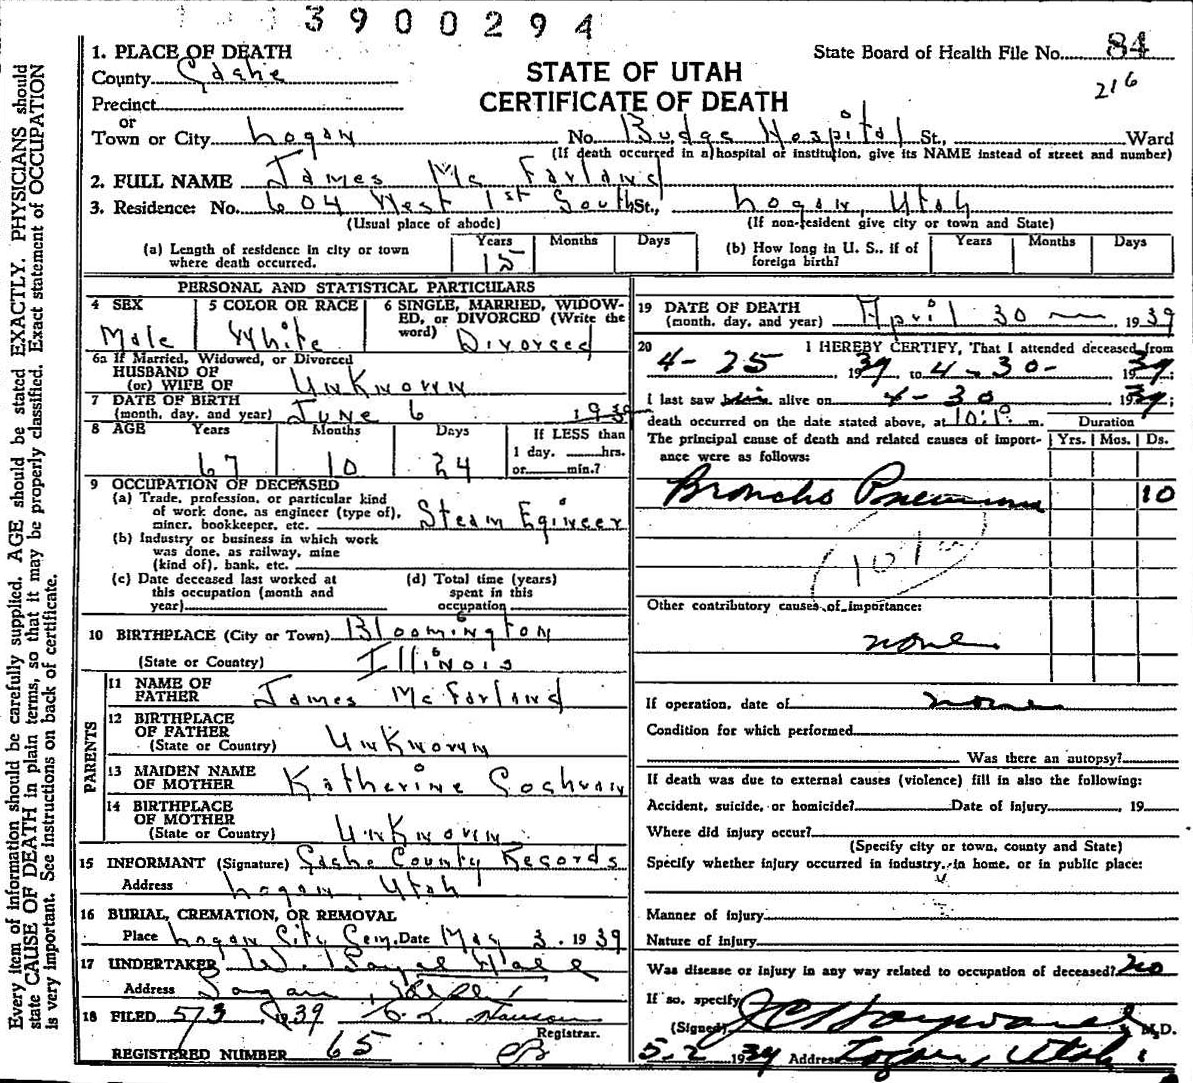 3900294
1. PLACE OF DEATH
County Cache
Precinct
or
Town or City Logan No. Budge Hospital St., Ward
(If death occurred in a hospital or institution, give its NAME instead of street and number)
State Board of Health File No. 84
216
STATE OF UTAH
CERTIFICATE OF DEATH
2. FULL NAME James McFarland
3. Residence: No. 604 West 1st South St., Logan, Utah
(Usual place of abode) (If non-resident give city or town and State)
(a) Length of residence in city or town where death occurred. Years 15 Months Days
(b) How long in U. S., if of foreign birth? Years Months Days
PERSONAL AND STATISTICAL PARTICULARS
4 SEX Male
5 COLOR OR RACE White
6 SINGLE, MARRIED, WIDOWED, or DIVORCED (Write the word) Divorced
6a If Married, Widowed, or Divorced
HUSBAND OF
(or) WIFE OF Unknown
7 DATE OF BIRTH
(month, day, and year) June 6 1939
8 AGE Years 67 Months 10 Days 24
If LESS than
1 day, hrs.
or min.?
9 OCCUPATION OF DECEASED
(a) Trade, profession, or particular kind
of work done, as engineer (type of),
miner, bookkeeper, etc. Steam Egineer
(b) Industry or business in which work
was done, as railway, mine
(kind of), bank, etc.
(c) Date deceased last worked at
this occupation (month and
year)
(d) Total time (years)
spent in this
occupation
10 BIRTHPLACE (City or Town) Bloomington
(State or Country) Illinois
PARENTS
11 NAME OF
FATHER James McFarland
12 BIRTHPLACE
OF FATHER
(State or Country) Unknown
13 MAIDEN NAME
OF MOTHER Katherine
14 BIRTHPLACE
OF MOTHER
(State or Country) Unknown
15 INFORMANT (Signature) Cache County Records
Address Logan, Utah
16 BURIAL, CREMATION, OR REMOVAL
Place Logan City Cem. Date May 3, 1939
17 UNDERTAKER W. Hall
Address Logan,
18 FILED 5/3 1939
Registrar.
REGISTERED NUMBER 65
19 DATE OF DEATH
(month, day, and year) April 30 1939
20 I HEREBY CERTIFY, That I attended deceased from
4-25 1939 to 4-30- 1939;
I last saw him alive on 4-30 1939;
death occurred on the date stated above, at 10:1P m.
The principal cause of death and related causes of importance were as follows:
Duration
Yrs. Mos. Ds.
Broncho Pneumonia 10
Other contributory causes of importance:
none
If operation, date of none
Condition for which performed
Was there an autopsy?
If death was due to external causes (violence) fill in also the following:
Accident, suicide, or homicide? Date of Injury , 19
Where did injury occur?
(Specify city or town, county and State)
Specify whether injury occurred in industry, in home, or in public place:
Manner of injury
Nature of Injury
Was disease or injury in any way related to occupation of deceased? no
If so, specify
(Signed) M.D.
5-2 1939 Address Logan, Utah
Every item of information should be carefully supplied. AGE should be stated EXACTLY. PHYSICIANS should
state CAUSE OF DEATH in plain terms, so that it may be properly classified. Exact statement of OCCUPATION
is very important. See instructions on back of certificate.